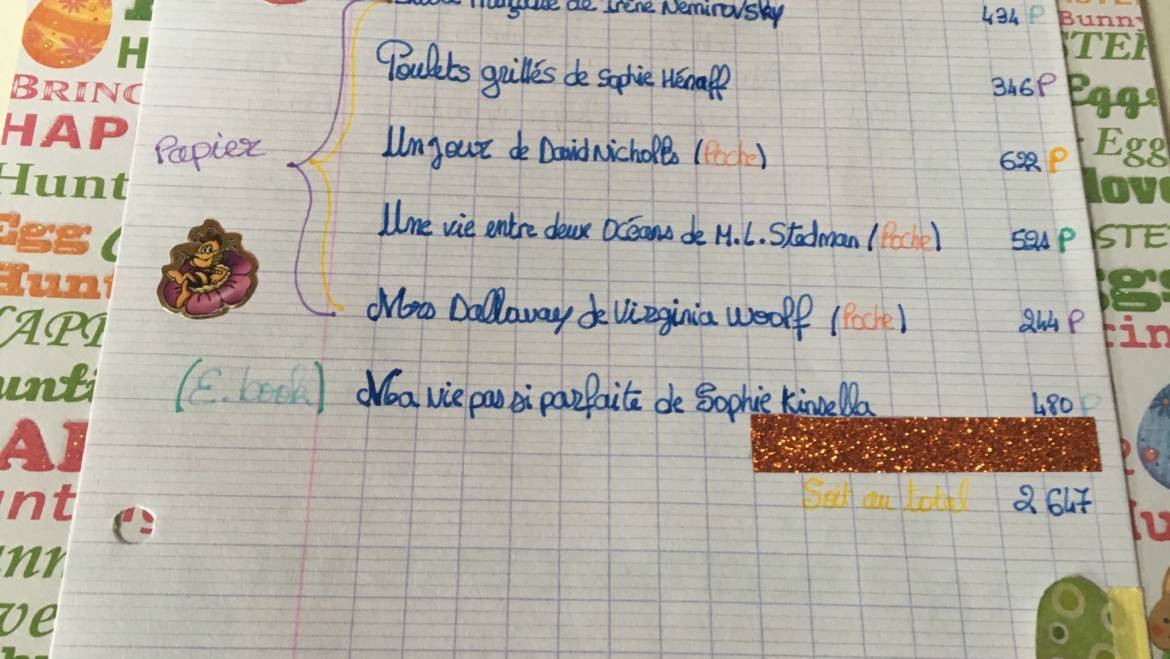 de Irène Nemirovsky 434 P
Poulets grillés de Sophie Hénaff 346 P
Papier
Un jour de David Nicholls (Poche) 622 P
Une vie entre deux Océans de M.L. Stadman (Poche) 521 P
Mrs Dalloway de Virginia Woolf (Poche) 244 P
(E.book) Ma vie pas si parfaite de Sophie Kinsella 480 P
Soit au total 2 647
BRING
HAP
Hunt
Egg
Hunt
Bunny
STER
Eggs
Egg
love
STE